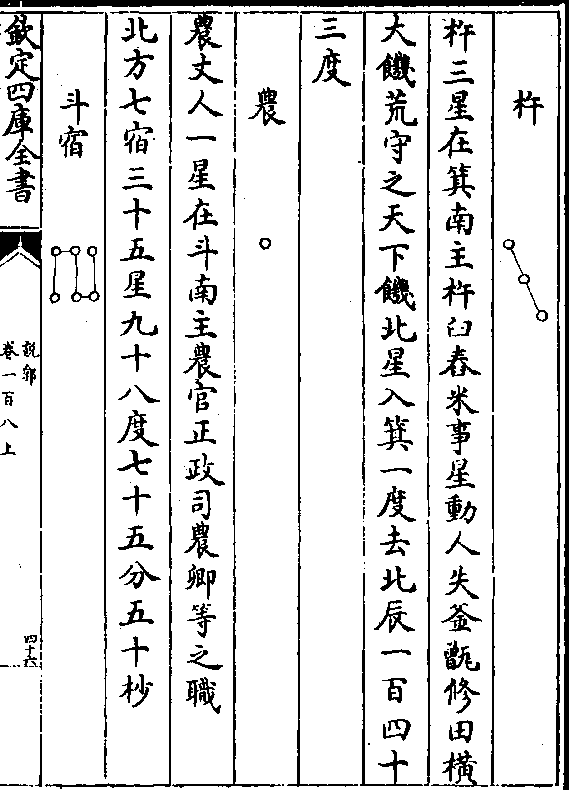 杵
杵三星在箕南主杵臼舂米事星動人失釜甑修田橫
大饑荒守之天下饑北星入箕一度去北辰一百四十
三度
農
農丈人一星在斗南主農官正政司農卿等之職
北方七宿三十五星九十八度七十五分五十杪
斗宿
欽定四庫全書
說郛
卷一百八上
四十六